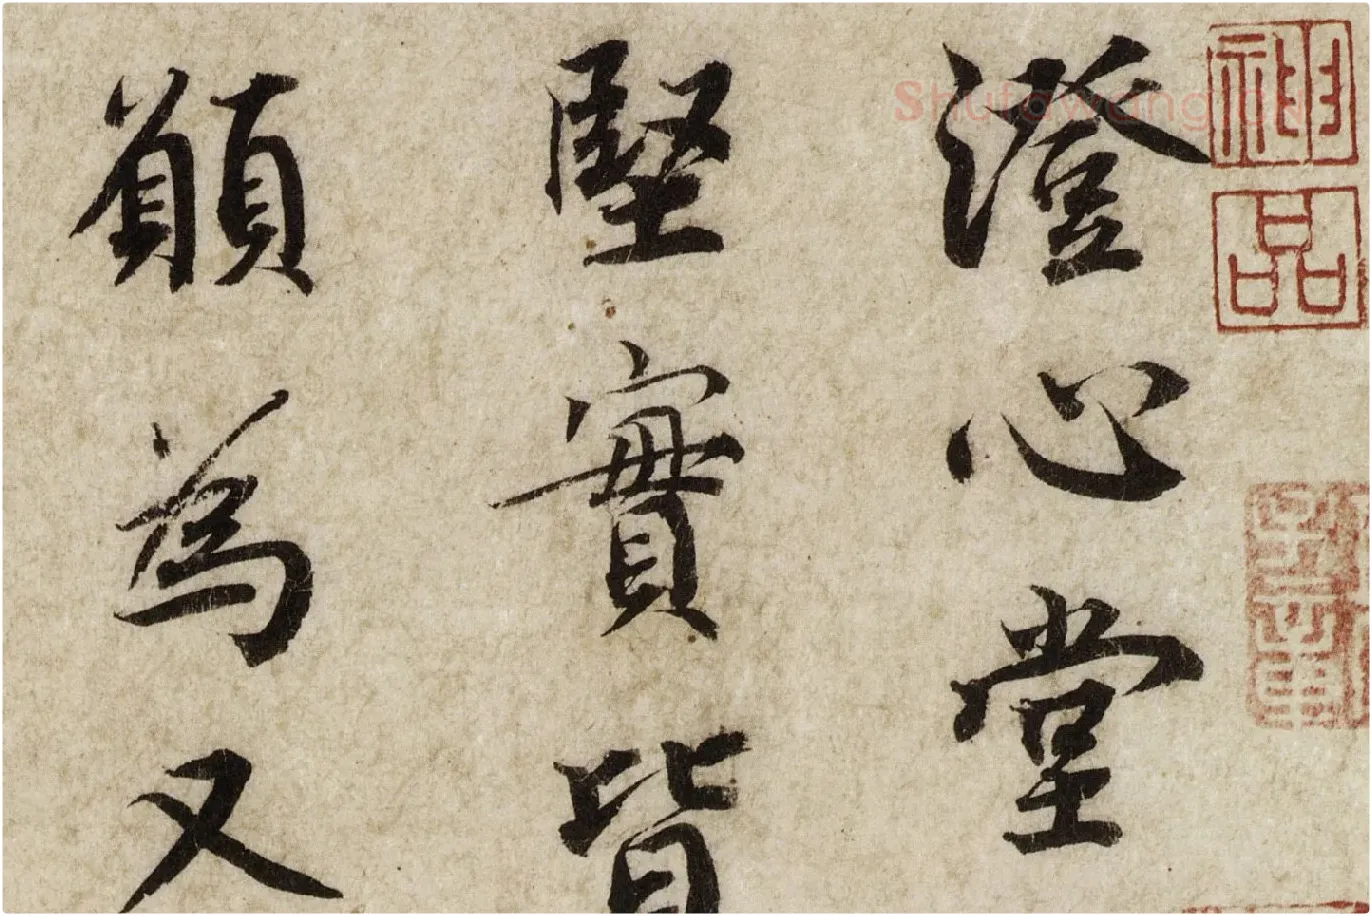 澄心堂
堅實皆
願為又
神品
Shufawang.cn